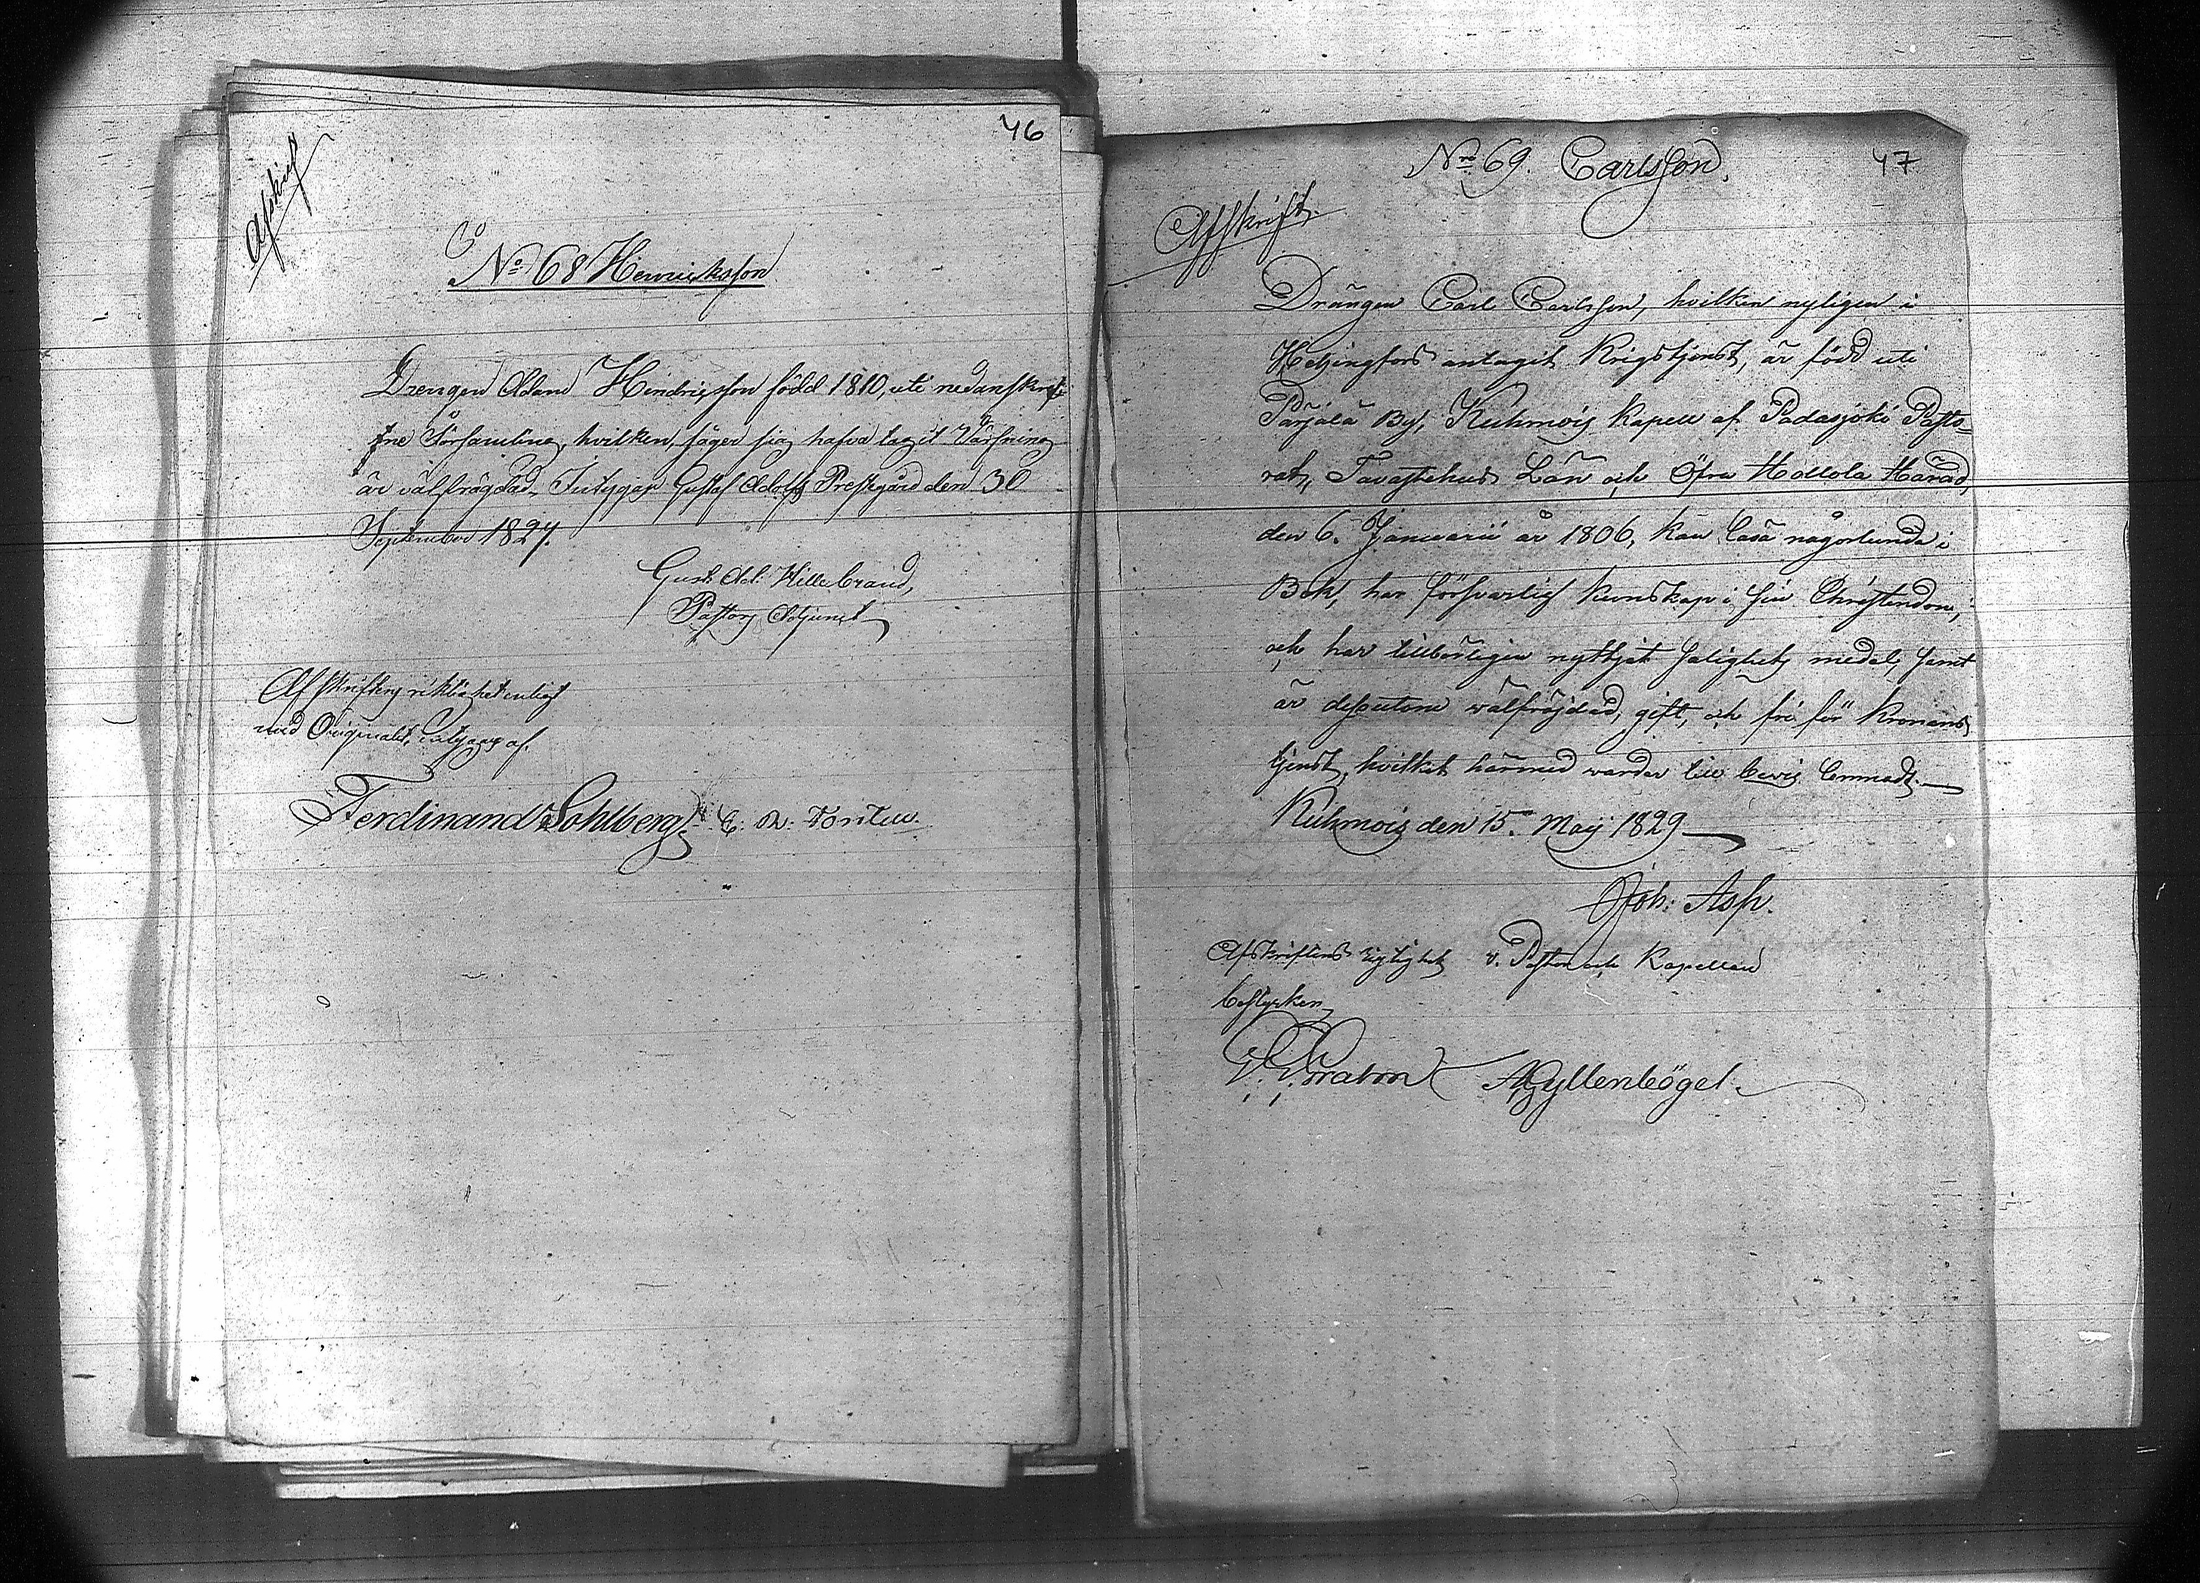 46
Afskrift
No 68 Henricksson
Drengen Adam Hindrigsson född 1810, uti nedanskref-
fne Församling, hvilken säger sig hafva tagit Värfning
är välfrägdad, Intygger Gustaf Adolfs Prestgård den 30
September 1827.
Gust: Ad: Willebrand,
Pastors Adjunct
Afskriftens riktighet enligt
med Originalet, intygas af.
Ferdinand Sohlberg
47
Nro 69. Carlsson.
Afskrift.
Drängen Carl Carlsson, hvilken nyligen i
Helsingfors antagit Krigstjenst, är född uti
Pärjälä By, Kuhmois Kapell af Padasjoki Pasto=
rat, Tavastehus Län och Öfre Hollola Härad,
den 6. Januarii år 1806, kan läsa någorlunda i
Bok, har försvarlig kunskap i sin Christendom,
och har tillbörligen nyttjat salighets medel, samt
är dessutom wälfräjdad, gift, och fri för Kronans
tjenst, hvilket härmed warder till bevis lemnadt.
Kuhmois den 15. Maij 1829
Joh: Asp.
Afskriftens riktighet v. Pastor och Kapellan
bestyrker,
AGyllenbögel.